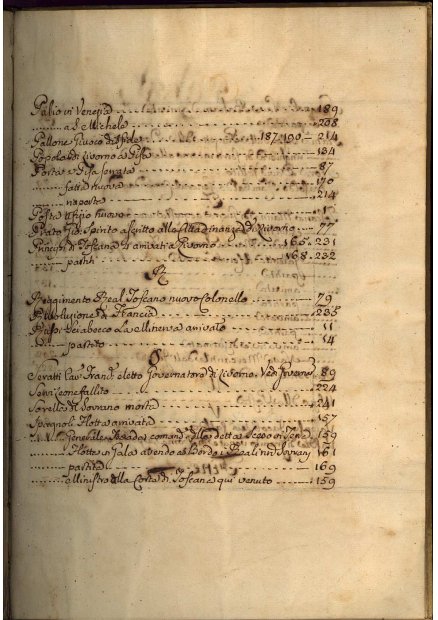 Palio in Venezia 189
a S. Michele 208
Pallone Giuoco 187. 190 - 214
Popolo di Livorno a Pisa 134
Porta a Pisa serrata 87
fatta nuova 170
riaperta 214
Posto nuovo 1
Prato Gio: Spinto ascritto alla Cittadinanza di Livorno 77
Principi di Toscana arrivati a Livorno 165. 231
partiti 168. 232
R
Reggimento Real Toscano nuovo Colonello 79
Rivoluzione di Francia 235
arrivato 11
partito 14
S
Seratti Cav. Franc. eletto Governatore di Livorno. Vedi Governo 89
fallito 224
Sorella di Sovrano morta 241
Spagnola Flotta arrivata 157
Generale comand. della detta 159
Flotta in Gala avendo a bordo i Reali Sovrani 161
partita 169
Ministro alla Corte di Toscana qui venuto 159